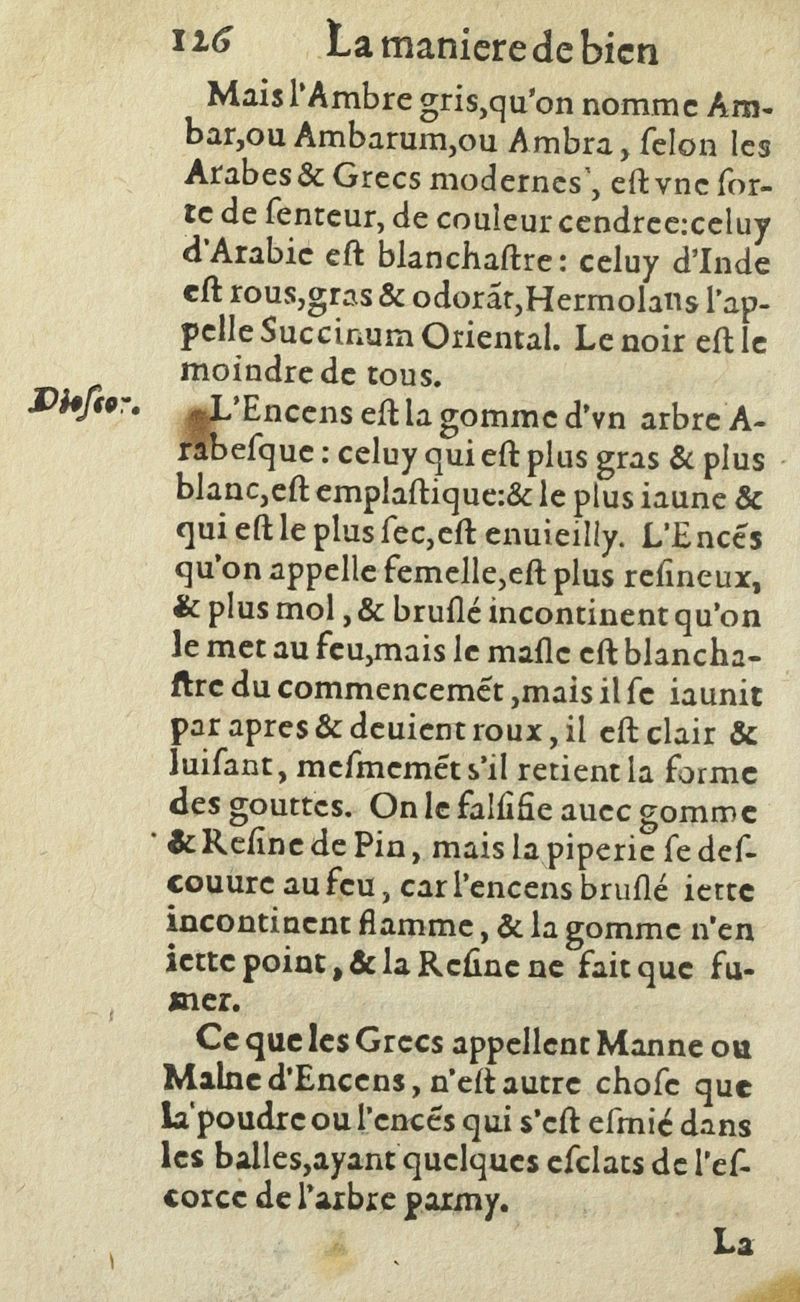 126 La maniere de bien
Mais l'Ambre gris,qu'on nomme Am-
bar,ou Ambarum,ou Ambra, ſelon les
Arabes & Grecs modernes', eſt vne ſor-
te de ſenteur, de couleur cendree:celuy
d'Arabie eſt blanchaſtre: celuy d'Inde
eſt rous,gras & odorãt,Hermolaus l'ap-
pelle Succinum Oriental. Le noir eſt le
moindre de tous.
Dioſcor.
L'Encens eſt la gomme d'vn arbre A-
rabeſque: celuy qui eſt plus gras & plus
blanc,eſt emplaſtique:& le plus iaune &
qui eſt le plus ſec,eſt enuieilly. L'Encẽs
qu'on appelle femelle,eſt plus reſineux,
& plus mol, & bruſlé incontinent qu'on
le met au feu,mais le maſle eſt blancha-
ſtre du commencemẽt ,mais il ſe iaunit
par apres & deuient roux, il eſt clair &
luiſant, meſmemẽt s'il retient la forme
des gouttes. On le falſifie auec gomme
& Reſine de Pin, mais la piperie ſe deſ-
couure au feu, car l'encens bruſlé iette
incontinent flamme, & la gomme n'en
iette point, & la Reſine ne fait que fu-
mer.
Ce que les Grecs appellent Manne ou
Maine d'Encens, n'eſt autre choſe que
la poudre ou l'encẽs qui s'eſt eſmié dans
les balles,ayant quelques eſclats de l'eſ-
corce de l'arbre parmy.
La